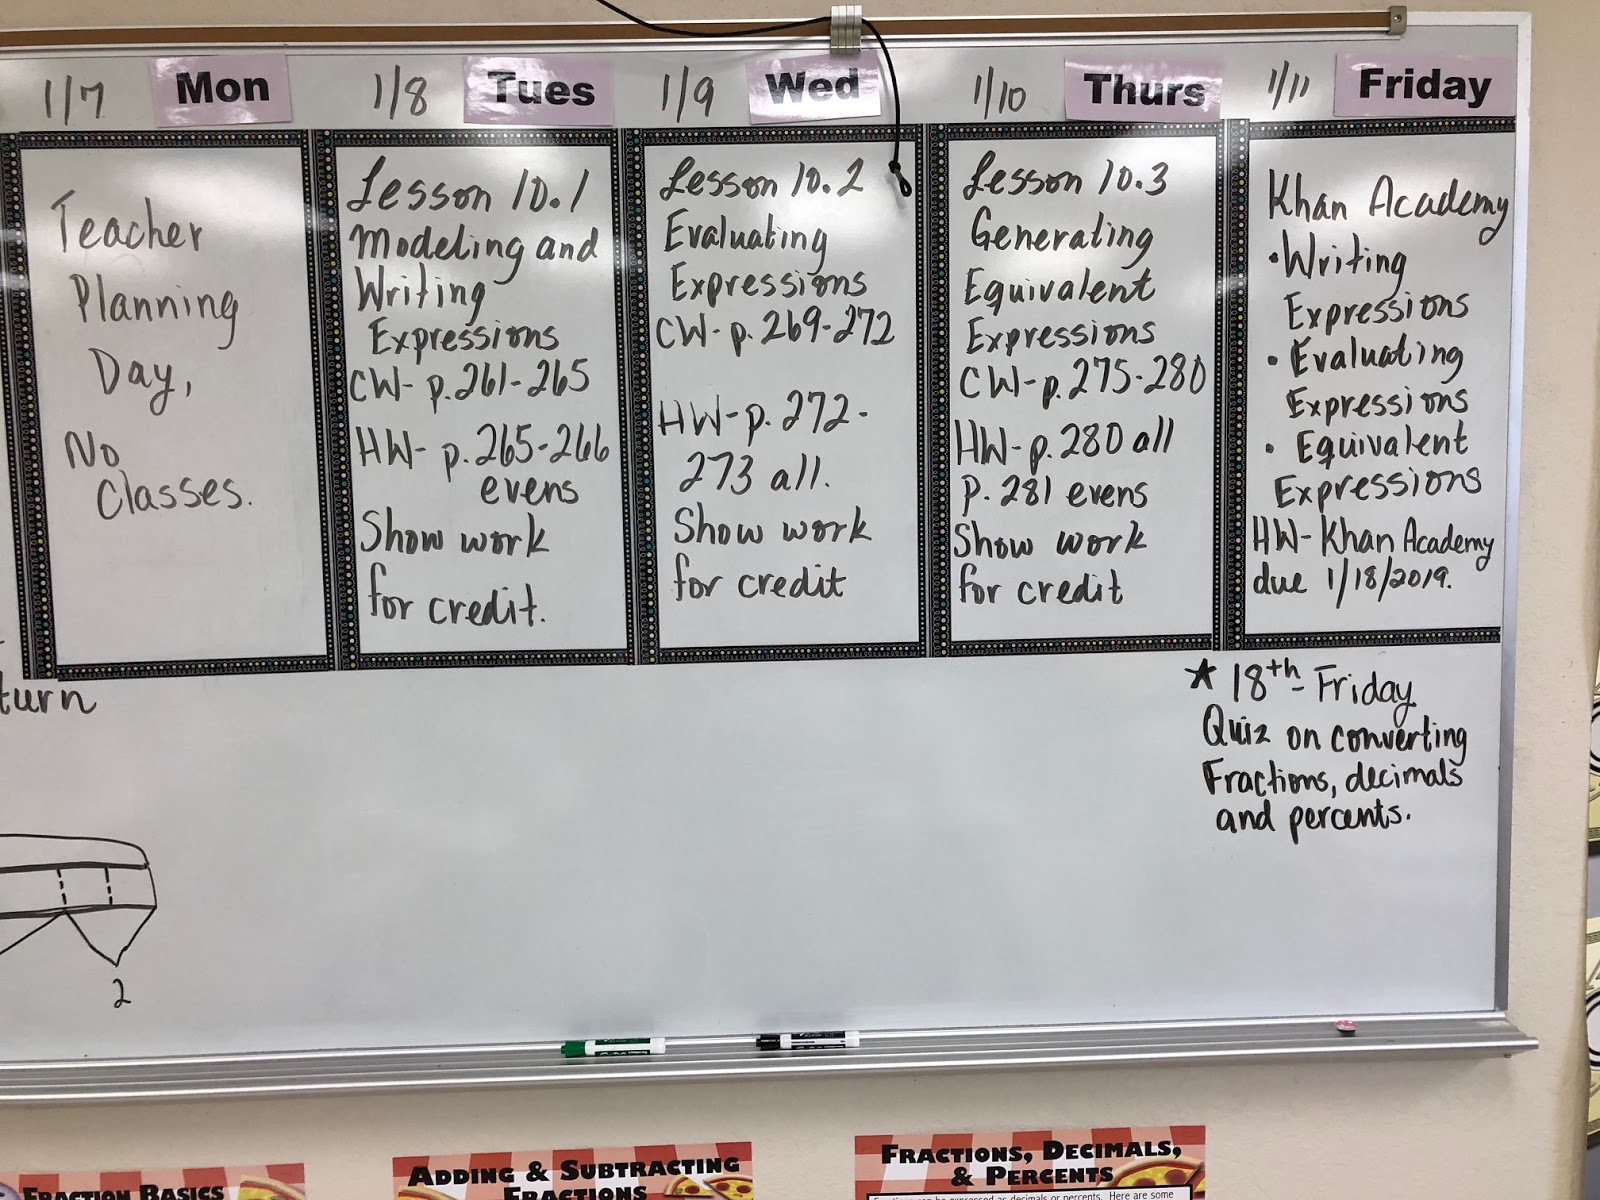 1/7 Mon
Teacher
Planning
Day,
No
Classes.
1/8 Tues
Lesson 10.1
Modeling and
Writing
Expressions
CW- p.261-265
HW- p.265-266
evens
Show work
for credit.
1/9 Wed
Lesson 10.2
Evaluating
Expressions
CW- p.269-272
HW- p.272-
273 all.
Show work
for credit
1/10 Thurs
Lesson 10.3
Generating
Equivalent
Expressions
CW- p.275-280
HW- p.280 all
p.281 evens
Show work
for credit
1/11 Friday
Khan Academy
• Writing
Expressions
• Evaluating
Expressions
• Equivalent
Expressions
HW- Khan Academy
due 1/18/2019.
* 18th- Friday
Quiz on converting
Fractions, decimals
and percents.
turn
2
FRACTION BASICS
ADDING & SUBTRACTING
FRACTIONS
FRACTIONS, DECIMALS,
& PERCENTS
Fractions can be expressed as decimals or percents. Here are some